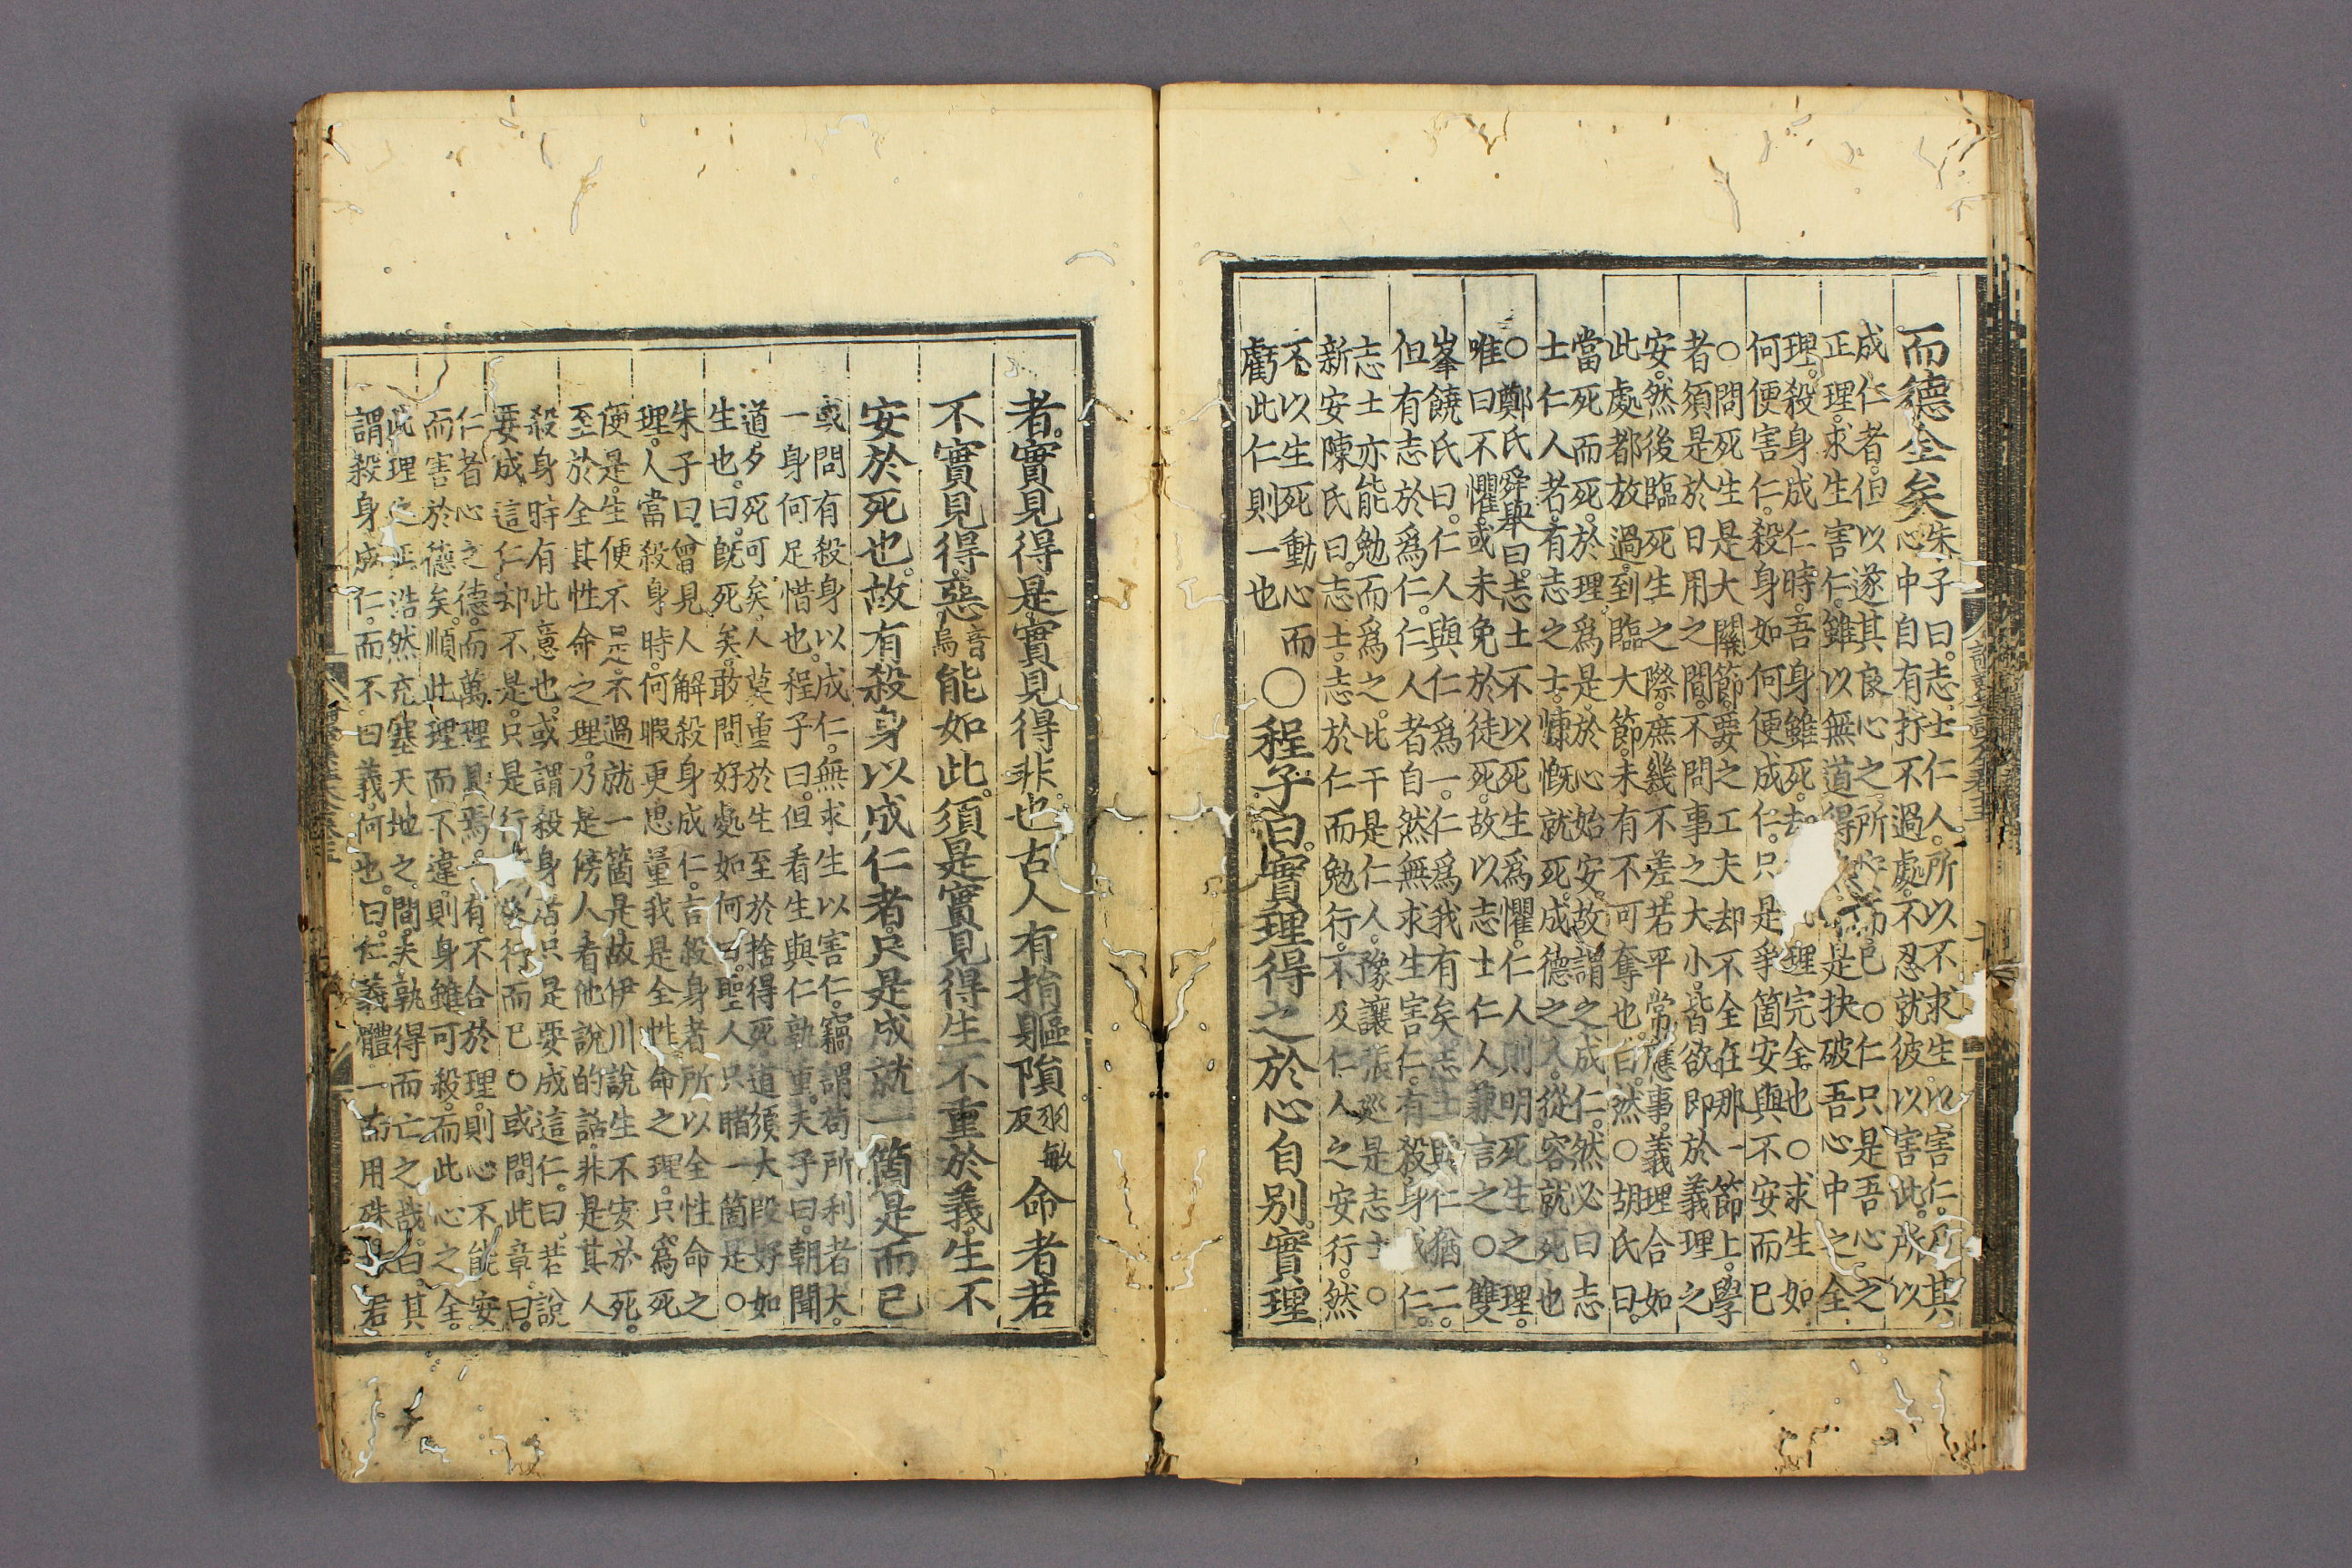 而德全矣朱子曰。志士仁人。所以不求生以害仁。所其
心中自有打不過處。不忍就彼以害此。所以
成仁者。但以遂其良心之所安而已○仁只是吾心之
正理。求生害仁。雖以無道得生。是抉破吾心中之全
理。殺身成仁時。吾身雖死。却理完全也○求生如
何便害仁。殺身如何便成仁。只是爭箇安與不安而已
○問死生是大關節。要之工夫却不全在那一節上。學
者須是於日用之間。不問事之大小。皆欲即於義理之
安。然後臨死生之際。庶幾不差。若平常應事。義理合如
此處都放過。到臨大節。未有不可奪也。曰。然○胡氏曰。
當死而死。於理爲是。於心始安。故謂之成仁。然必曰志
士仁人者。有志之士。慷慨就死。成德之人。從容就死也
○鄭氏舜舉曰。志士不以死生爲懼。仁人則明死生之理。
唯曰不懼。或未免於徒死。故以志士仁人兼言之○雙
峯饒氏曰。仁人與仁爲一。仁爲我有矣。志士與仁猶二。
但有志於爲仁。仁人者自然無求生害仁。有殺身成仁。
志士亦能勉而爲之。比干是仁人。豫讓張巡是志士○
新安陳氏曰。志士。志於仁而勉行。不及仁人之安行。然
不以生死動心而
虧此仁則一也
○程子曰。實理得之於心自别。實理
者。實見得是實見得非也。古人有捐軀隕羽敏反命者若
不實見得。惡音烏能如此。須是實見得生不重於義。生不
安於死也。故有殺身以成仁者。只是成就一箇是而已
或問有殺身以成仁。無求生以害仁。竊謂苟所利者大。
一身何足惜也。程子曰。但看生與仁孰重。夫子曰。朝聞
道。夕死可矣。人莫重於生。至於捨得死。道須大段好如
生也。曰。旣死矣。敢問好處如何。曰。聖人只睹一箇是○
朱子曰。曾見人解殺身成仁。言殺身者所以全性命之
理。人當殺身時。何暇更思量我是全性命之理。只爲死
便是。生便不是。不過就一箇是。故伊川說生不安於死。
至於全其性命之理。乃是傍人看他說的話。非是其人
殺身時有此意也。或謂殺身者只是要成這仁。曰。若說
要成這仁。却不是。只是行所當行而已○或問此章。曰。
仁者心之德。而萬理具焉。一有不合於理。則心不能安
而害於德矣。順此理而不違。則身雖可殺。而此心之全。
此理之正。浩然充塞天地之間。夫孰得而亡之哉。曰。其
謂殺身成仁。而不曰義。何也。曰。仁義體一而用殊。君